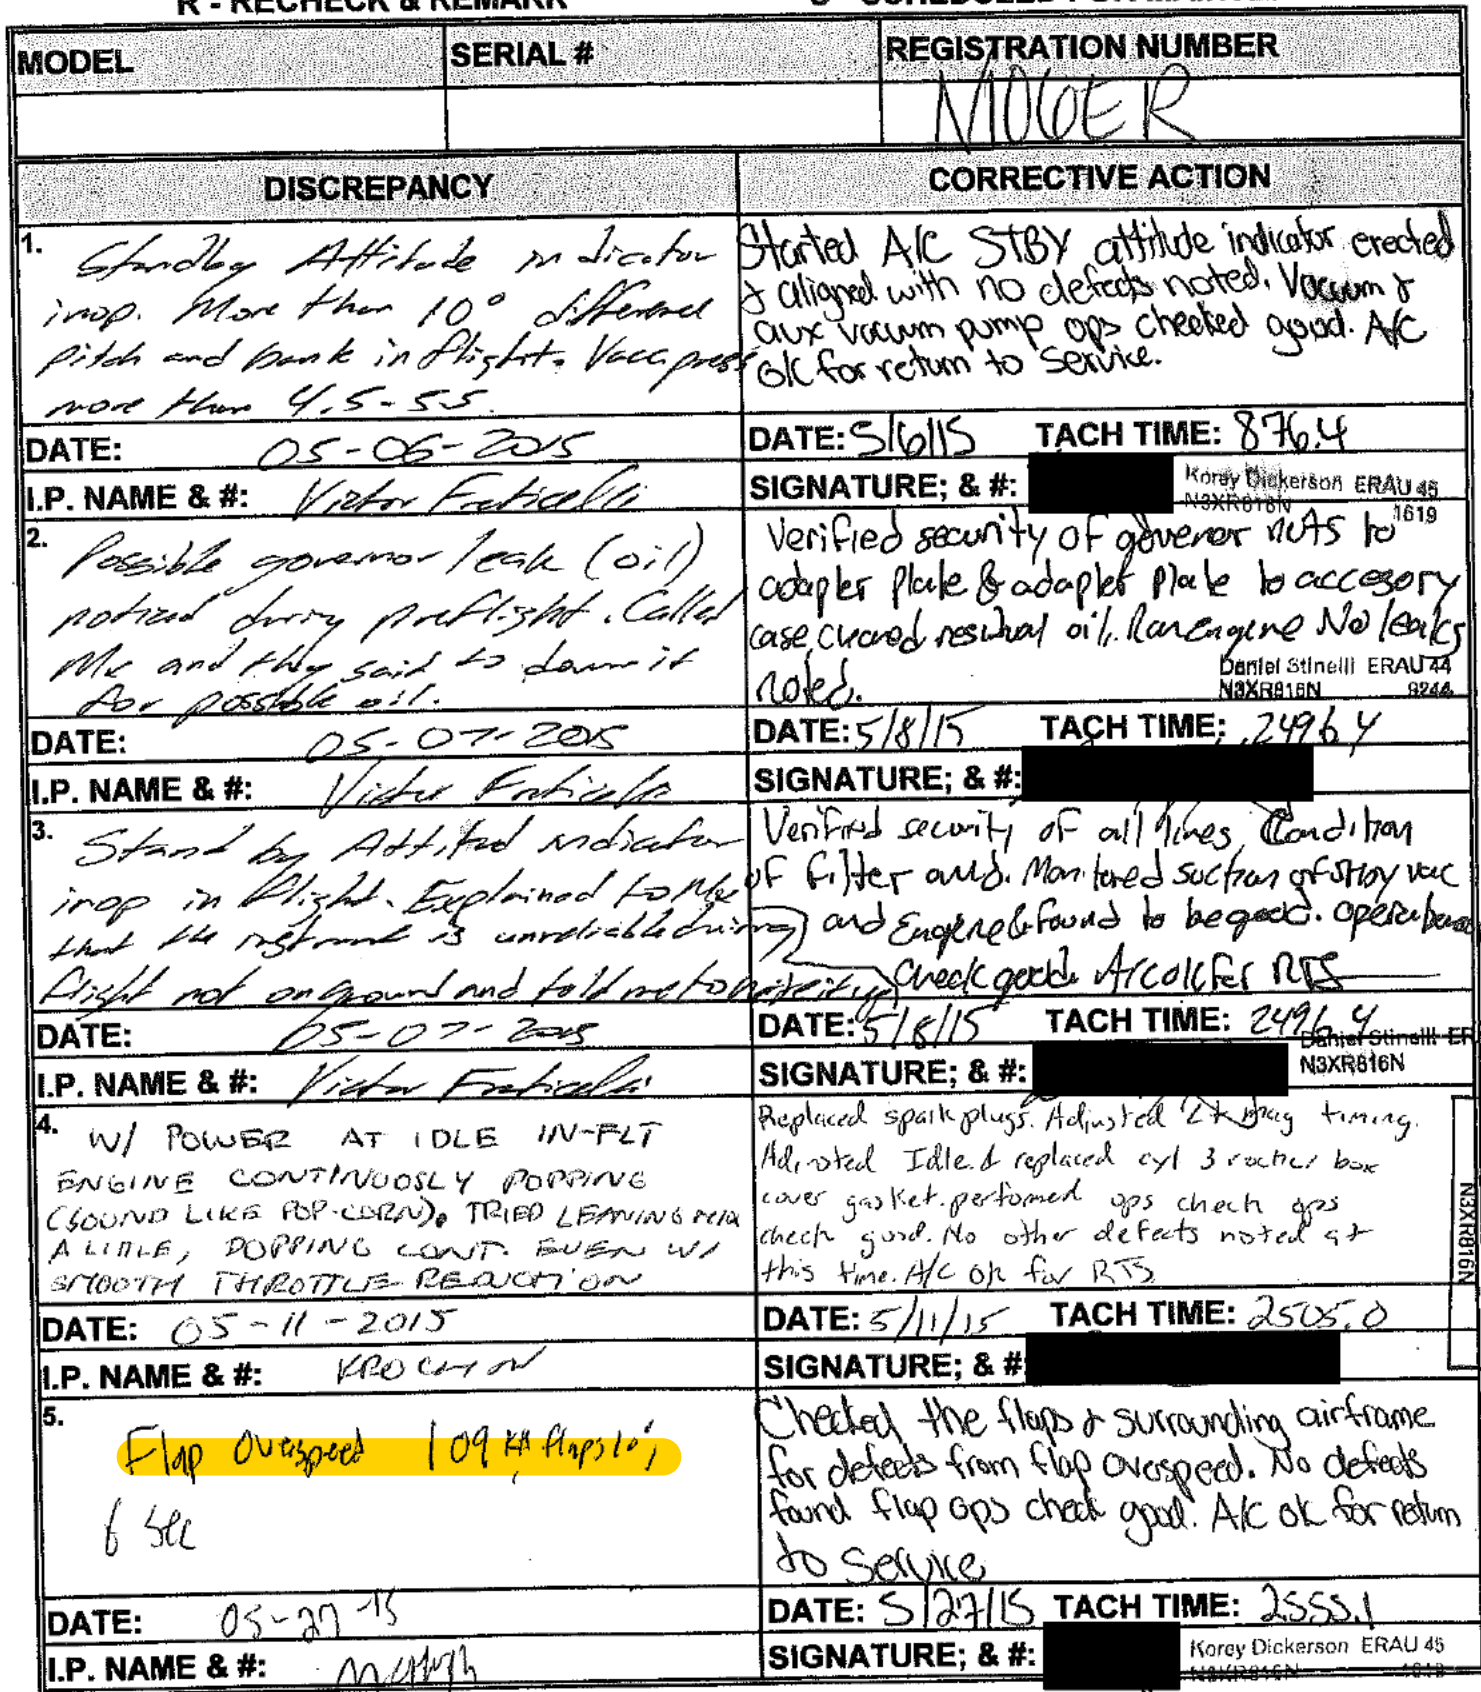 R - RECHECK & REMARK
MODEL SERIAL # REGISTRATION NUMBER
N106ER
DISCREPANCY CORRECTIVE ACTION
1. Standby Attitude indicator
inop. More than 10° different
pitch and bank in flight. Vacc. press
more than 4.5-5.5.
Started A/C STBY attitude indicator erected
& aligned with no defects noted. Vacuum &
aux vacuum pump ops checked good. A/C
ok for return to service.
DATE: 05-06-2015 DATE: 5/6/15 TACH TIME: 876.4
I.P. NAME & #: Victor Fraticelli SIGNATURE; & #: Korey Dickerson ERAU 45
N3XR816N 1619
2. Possible governor leak (oil)
noticed during preflight. Called
Mx and they said to down it
for possible oil.
Verified security of govenor nuts to
adapter plate & adapter plate to accesory
case, cleaned residual oil. Ran engine No leaks
noted.
Daniel Stinelli ERAU 44
N3XR816N 9244
DATE: 05-07-2015 DATE: 5/8/15 TACH TIME: 2496.4
I.P. NAME & #: Victor Fraticelli SIGNATURE; & #:
3. Stand by Attitud indicator
inop in flight. Explained to Mx
that the instrument is unreliable during
flight not on ground and told me to write it up
Verified security of all lines, Condition
of filter and. Monitored suction of stby vac
and Engine & found to be good. operational
check good. A/C ok for RTS
DATE: 05-07-2015 DATE: 5/8/15 TACH TIME: 2496.4
Daniel Stinelli ER
N3XR816N
I.P. NAME & #: Victor Fraticelli SIGNATURE; & #:
4. W/ POWER AT IDLE IN-FLT
ENGINE CONTINUOSLY POPPING
(SOUND LIKE POP-CORN). TRIED LEANING MIX
A LITTLE, POPPING CONT. EVEN W/
SMOOTH THROTTLE REDUCTION
Replaced spark plugs. Adjusted mag timing.
Adjusted Idle. & replaced cyl 3 rocker box
cover gasket. performed ops check ops
check good. No other defects noted at
this time. A/C ok for RTS
N3XR816N
DATE: 05-11-2015 DATE: 5/11/15 TACH TIME: 2505.0
I.P. NAME & #: SIGNATURE; & #
5. Flap Overspeed 109 kts flaps 10°,
6 sec
Checked the flaps & surrounding airframe
for defects from flap overspeed. No defects
found flap ops check good. A/C ok for return
to service
DATE: 05-27-15 DATE: 5/27/15 TACH TIME: 2555.1
I.P. NAME & #: SIGNATURE; & #: Korey Dickerson ERAU 45
N3XR816N 1619